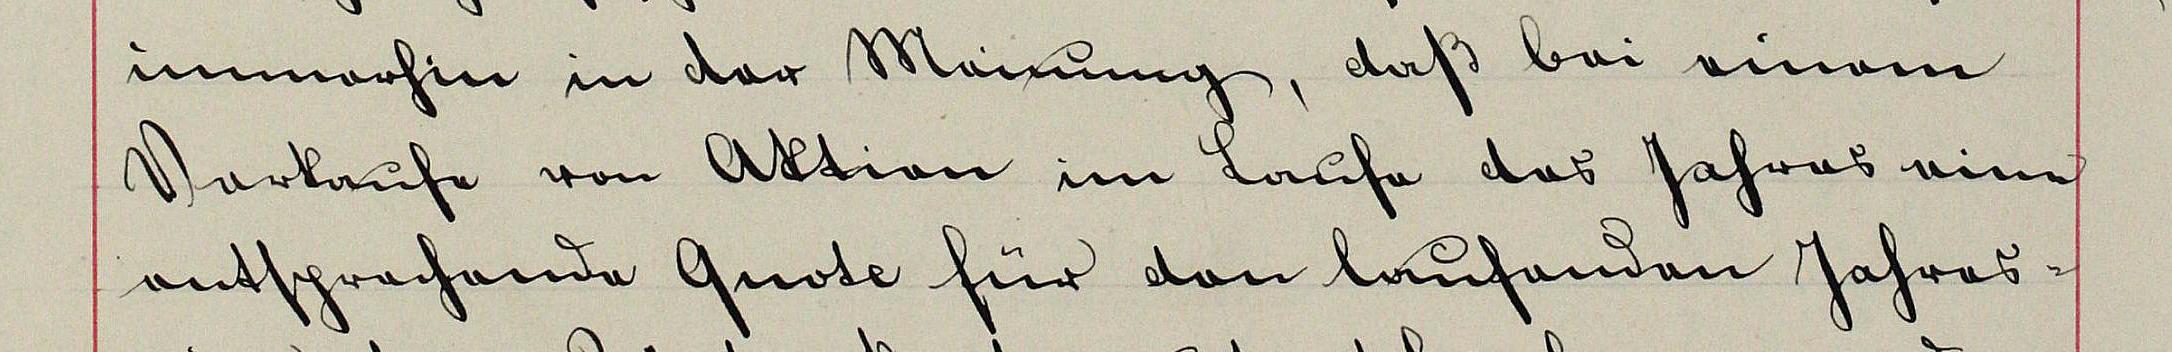 immerhin in der Meinung, daß bei einem
Verkaufe von Aktien im Laufe des Jahres eine
entsprechende Quote für den laufenden Jahres-